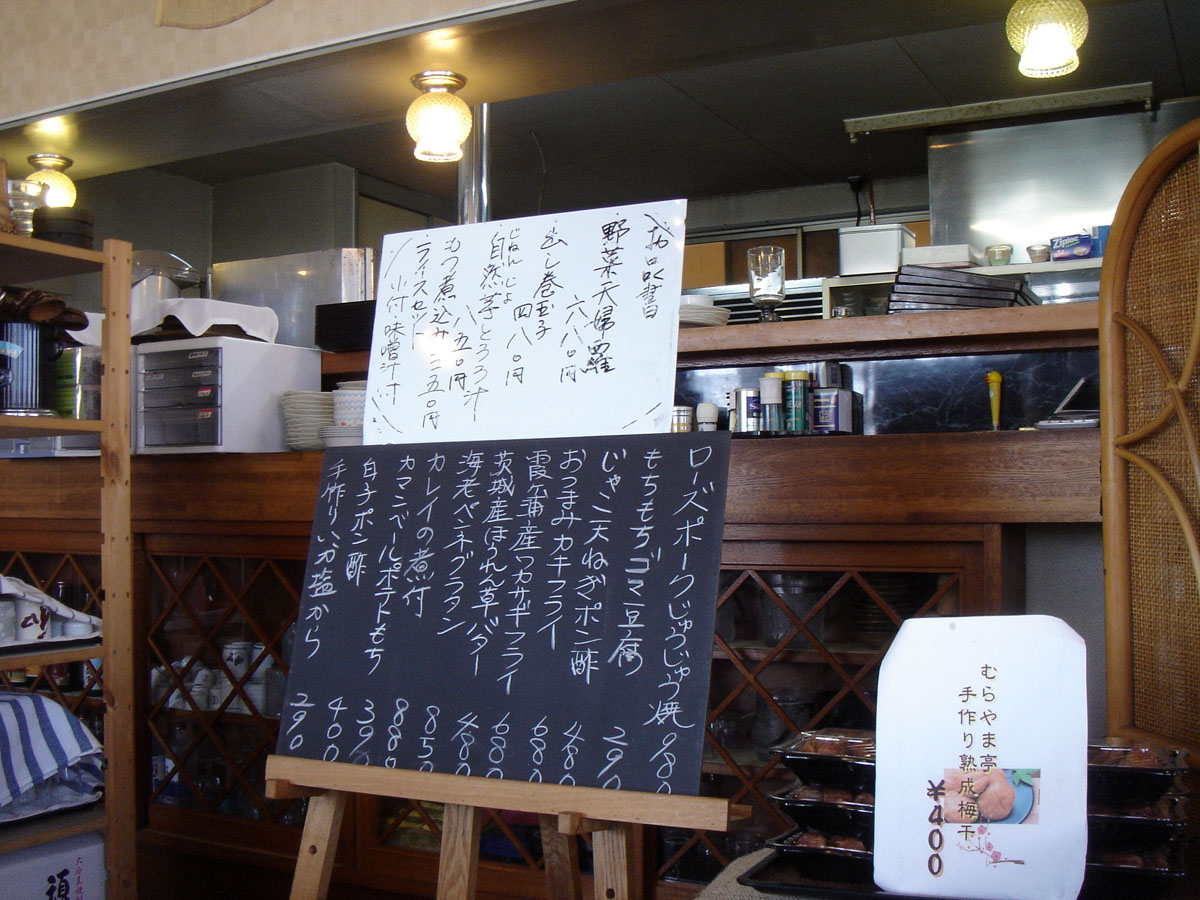 野菜天婦羅
六八〇円
出し巻玉子
四八〇円
じねんじょ
自然芋とろろ汁
八五〇円
もつ煮込み 三五〇円
ライスセット
小付 味噌汁付
ローズポークじゅうじゅう焼 980
もちもちゴマ豆腐 290
じゃこ天ねぎポン酢 480
おつまみカキフライ 680
霞ヶ浦産ワカサギフライ 680
茨城産ほうれん草バター 480
海老ペンネグラタン 850
カレイの煮付 880
カマンベールポテトもち 390
白子ポン酢 400
手作りいか塩から 290
むらやま亭
手作り熟成梅干
¥400
Ziploc